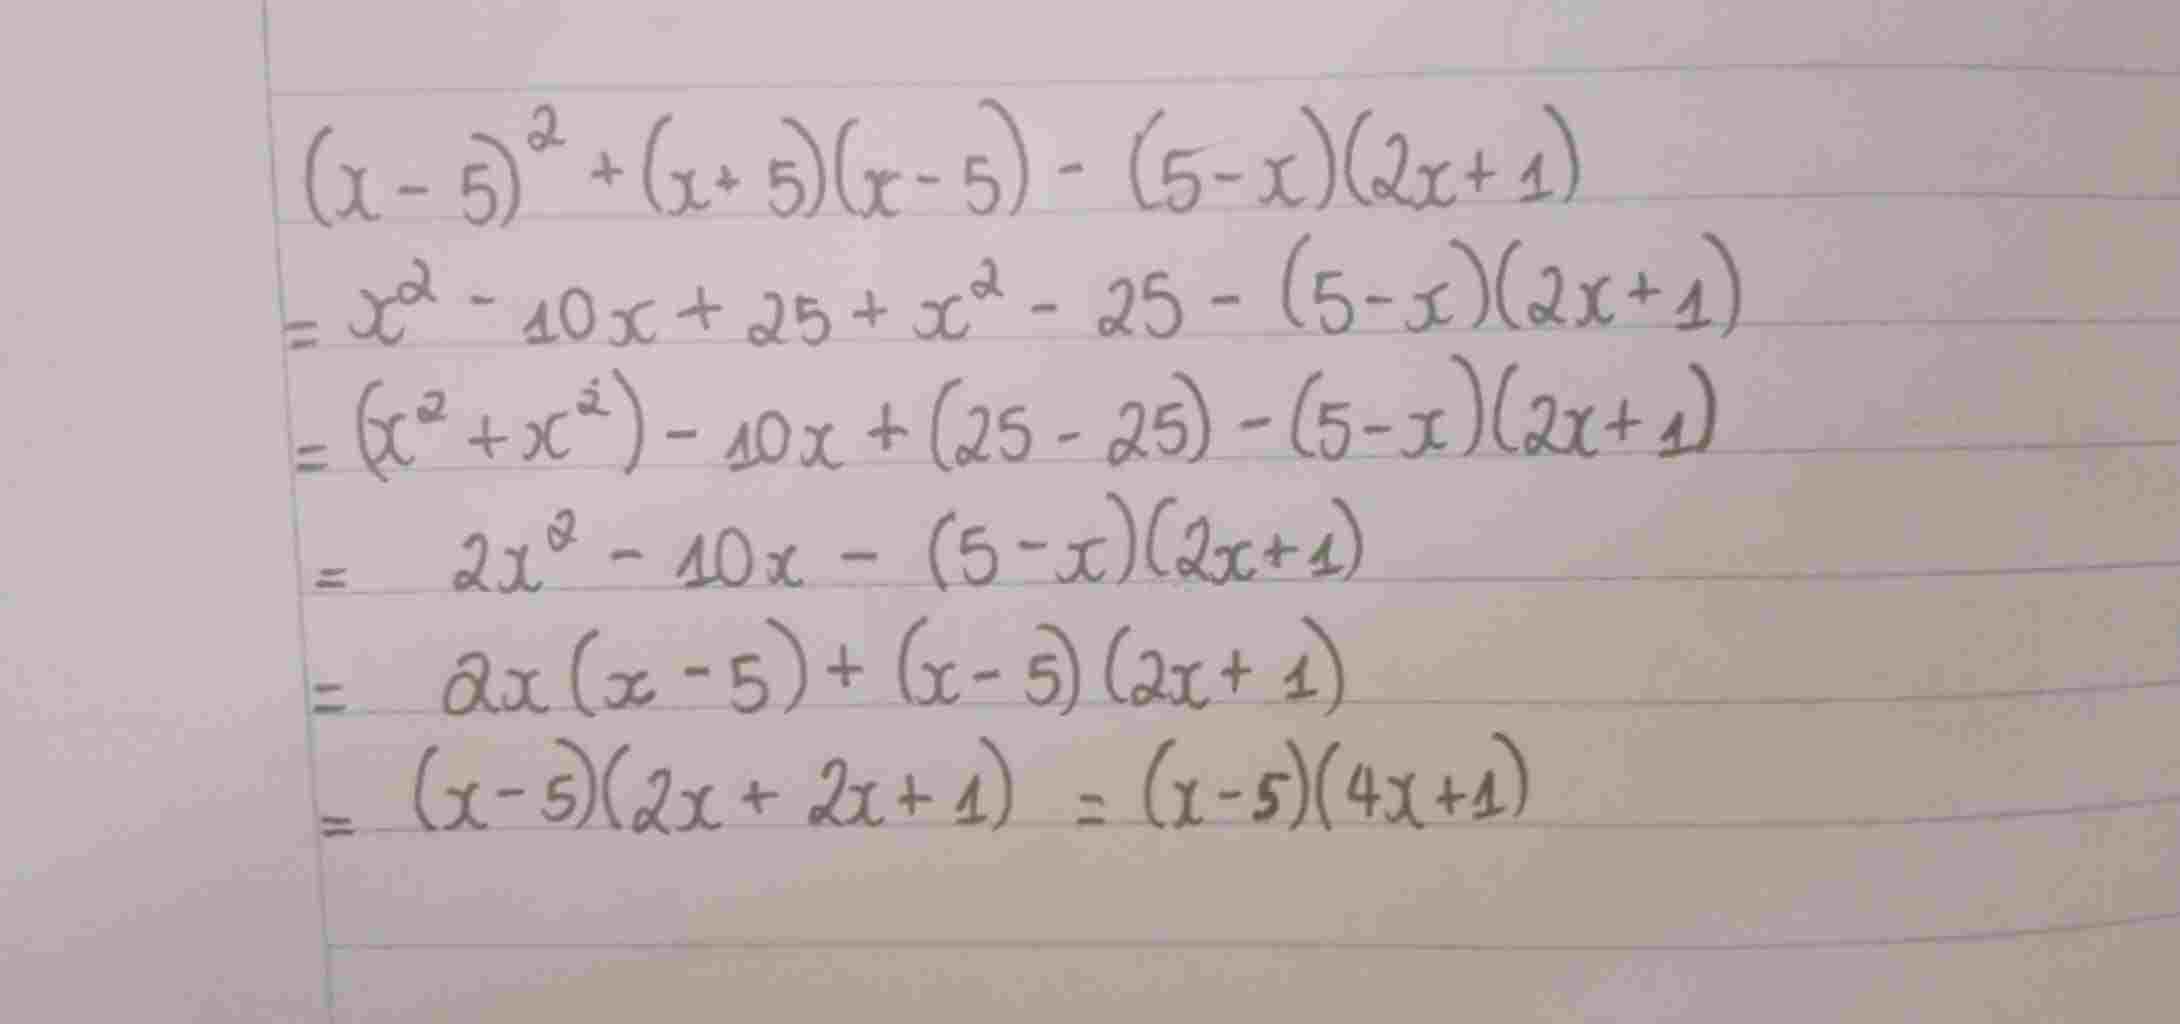 (x - 5)² + (x + 5)(x - 5) - (5 - x)(2x + 1)
= x² - 10x + 25 + x² - 25 - (5 - x)(2x + 1)
= (x² + x²) - 10x + (25 - 25) - (5 - x)(2x + 1)
= 2x² - 10x - (5 - x)(2x + 1)
= 2x(x - 5) + (x - 5)(2x + 1)
= (x - 5)(2x + 2x + 1) = (x - 5)(4x + 1)